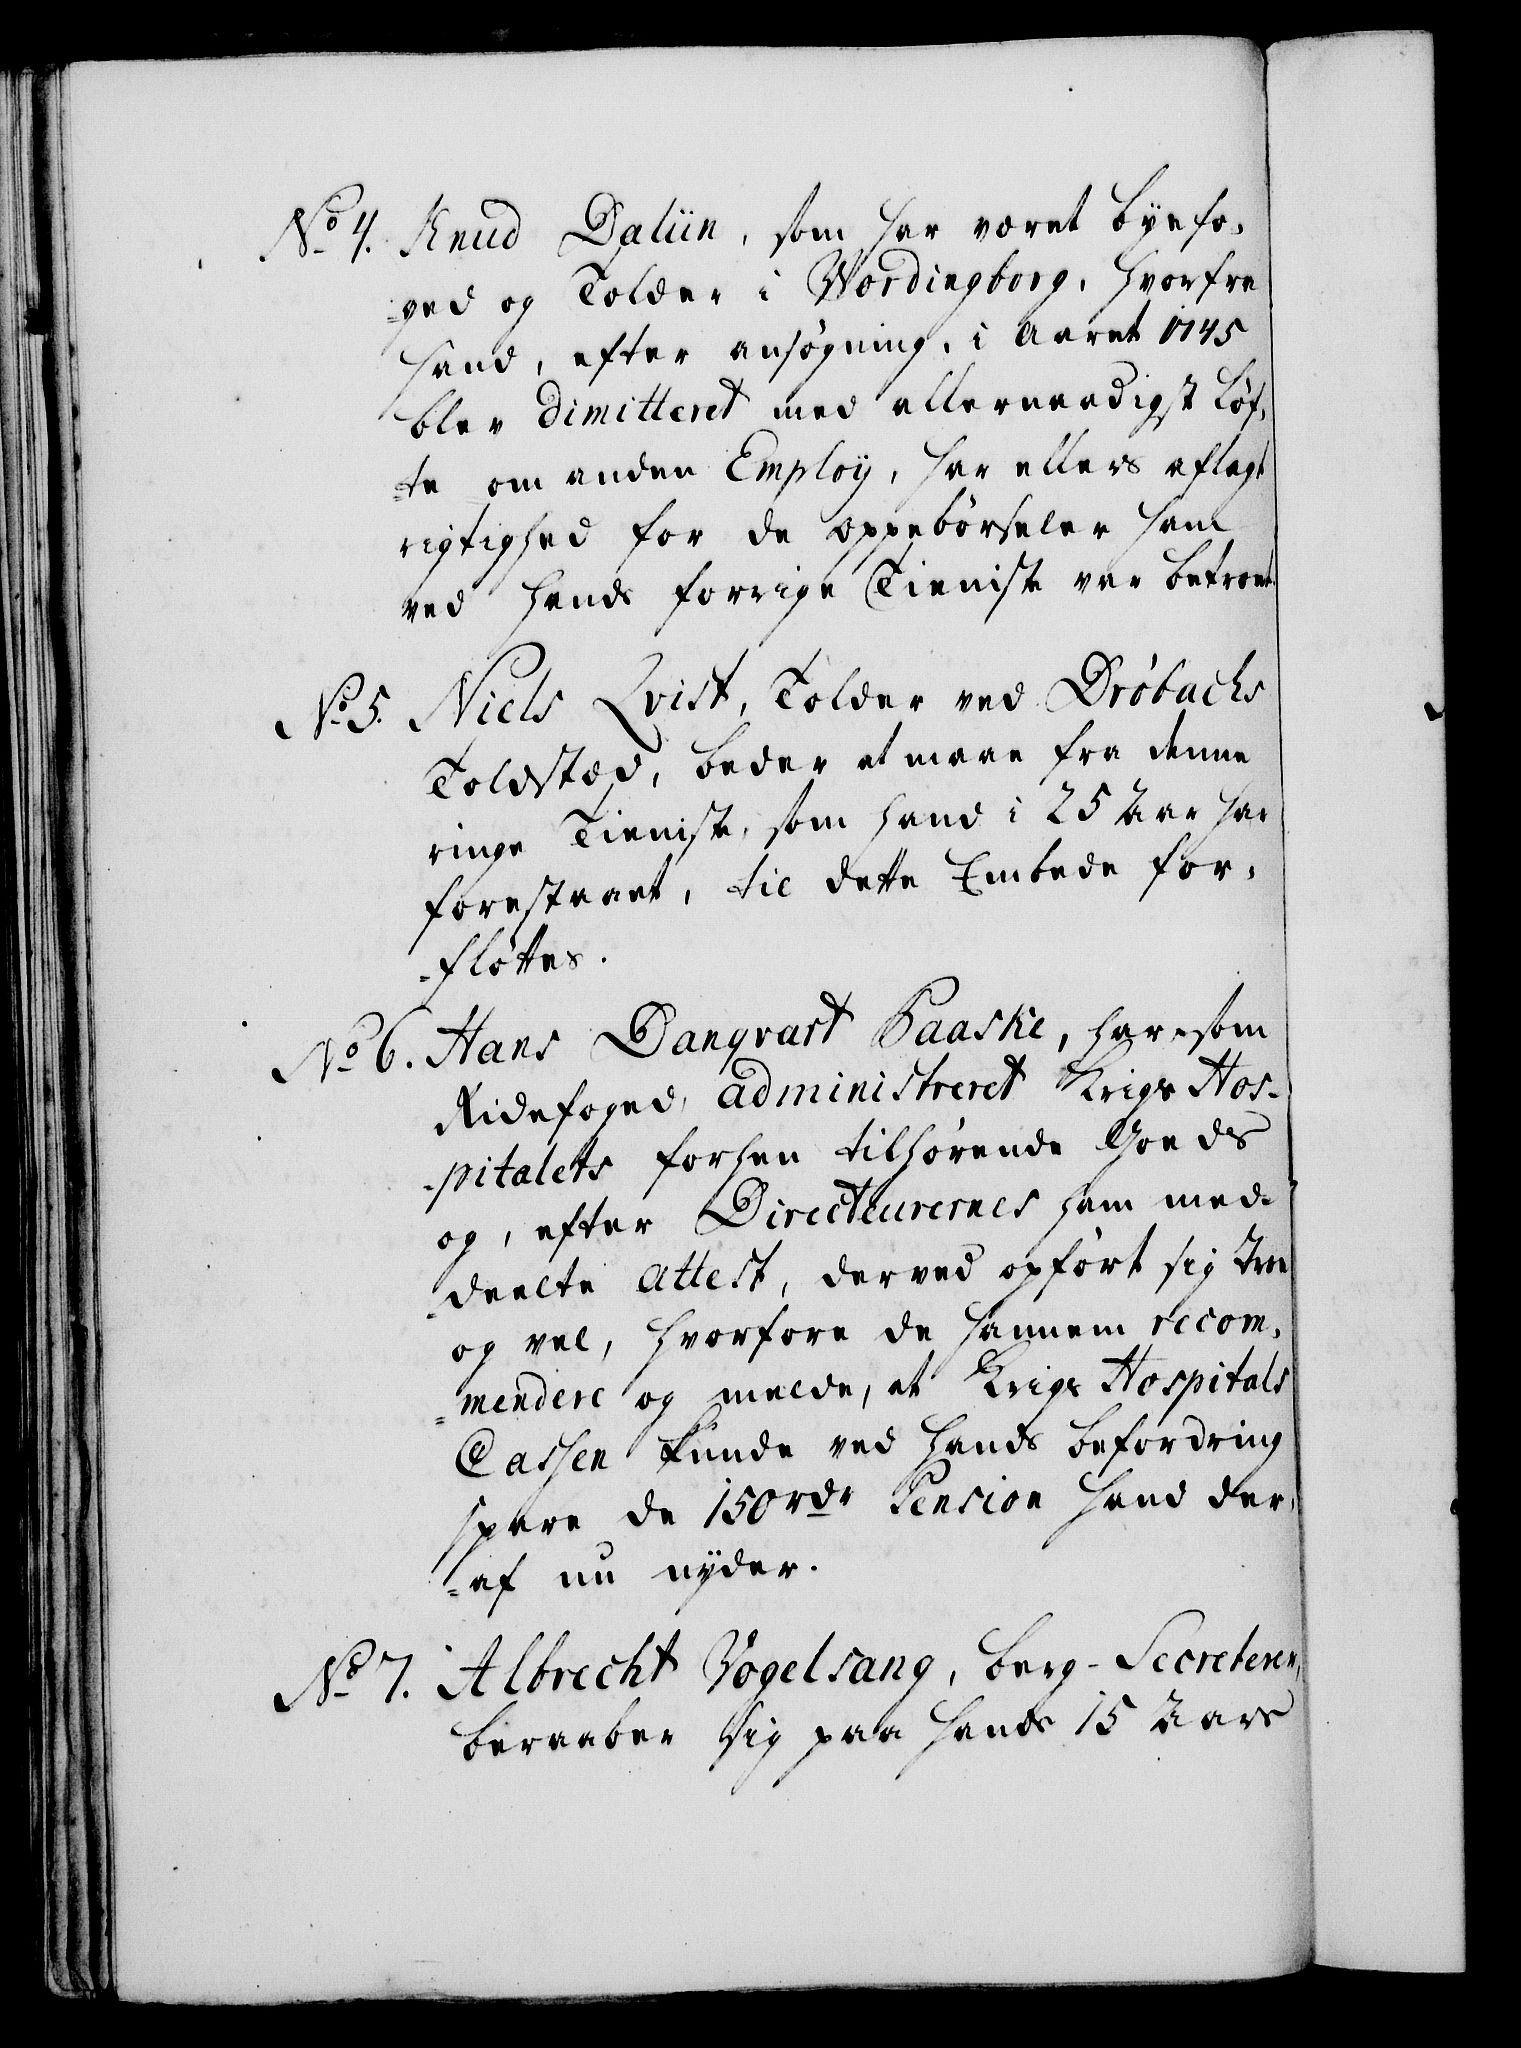 No 4. Knud Daliin, som har været byefo-
-ged og Tolder i Wordingborg, hvorfra
hand, efter ansøgning, i Aaret 1745
blev dimitteret med allernaadigst Løf-
-te om anden Employ, har ellers aflagt
rigtighed for de Oppebørseler ham
ved hands forrige Tieniste var betroet
No 5. Niels Qvist, Tolder ved Drøbachs
Toldstæd, beder at maae fra denne
ringe Tieniste, som hand i 25 Aar har
forestaaet, til dette Embede for-
-fløttes.
No 6. Hans Danqvart Paaske, har som
Ridefoged, administreret Krigs Hos-
-pitalets forhen tilhørende Goeds
og, efter Directeurernes ham med-
-deelte Attest, derved opført sig troe
og vel, hvorfore de hannem recom-
-mendere og melde, at Krigs Hospitals
Cassen kunde ved hands befordring
spare de 150 rdr Pension hand der-
-af nu nyder.
No 7. Albrecht Vogelsang, Berg-Secreterer,
beraaber sig paa hands 15 Aars